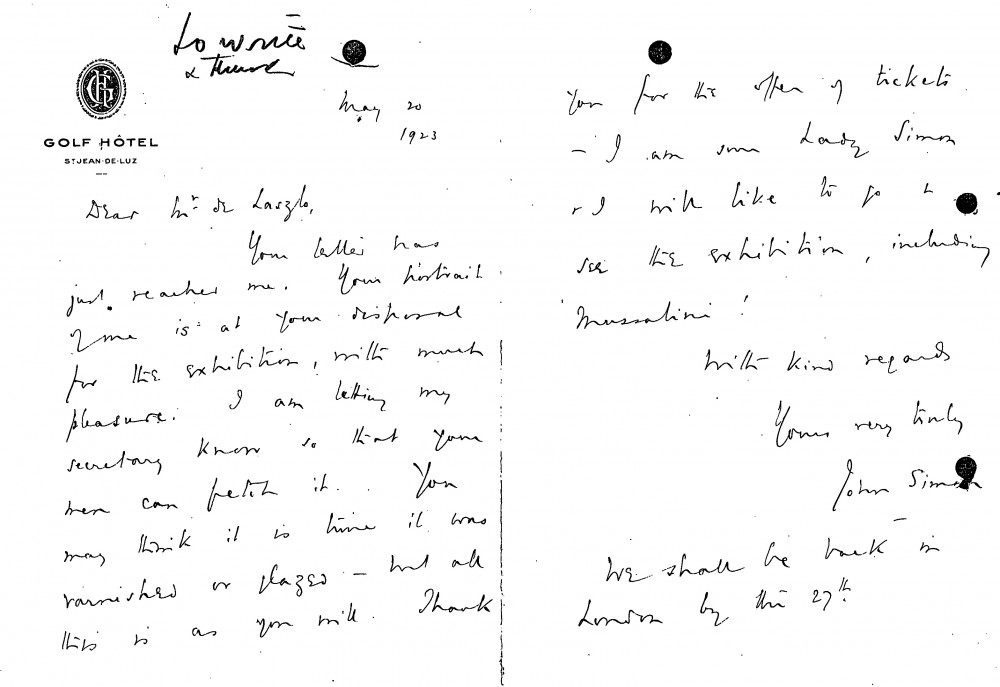 To write
& Thank
GH
GOLF HÔTEL
ST JEAN-DE-LUZ
May 20
1923
Dear Mr de Laszlo,
Your letter has
just reached me. Your portrait
of me is at your disposal
for the exhibition, with much
pleasure. I am letting my
secretary know so that your
men can fetch it. You
may think it is time it was
varnished or glazed – but all
this is as you will. Thank
you for the offer of tickets
– I am sure Lady Simon
& I will like to go &
see the exhibition, including
Mussolini!
With kind regards
Yours very truly
John Simon
We shall be back in
London by the 27th.